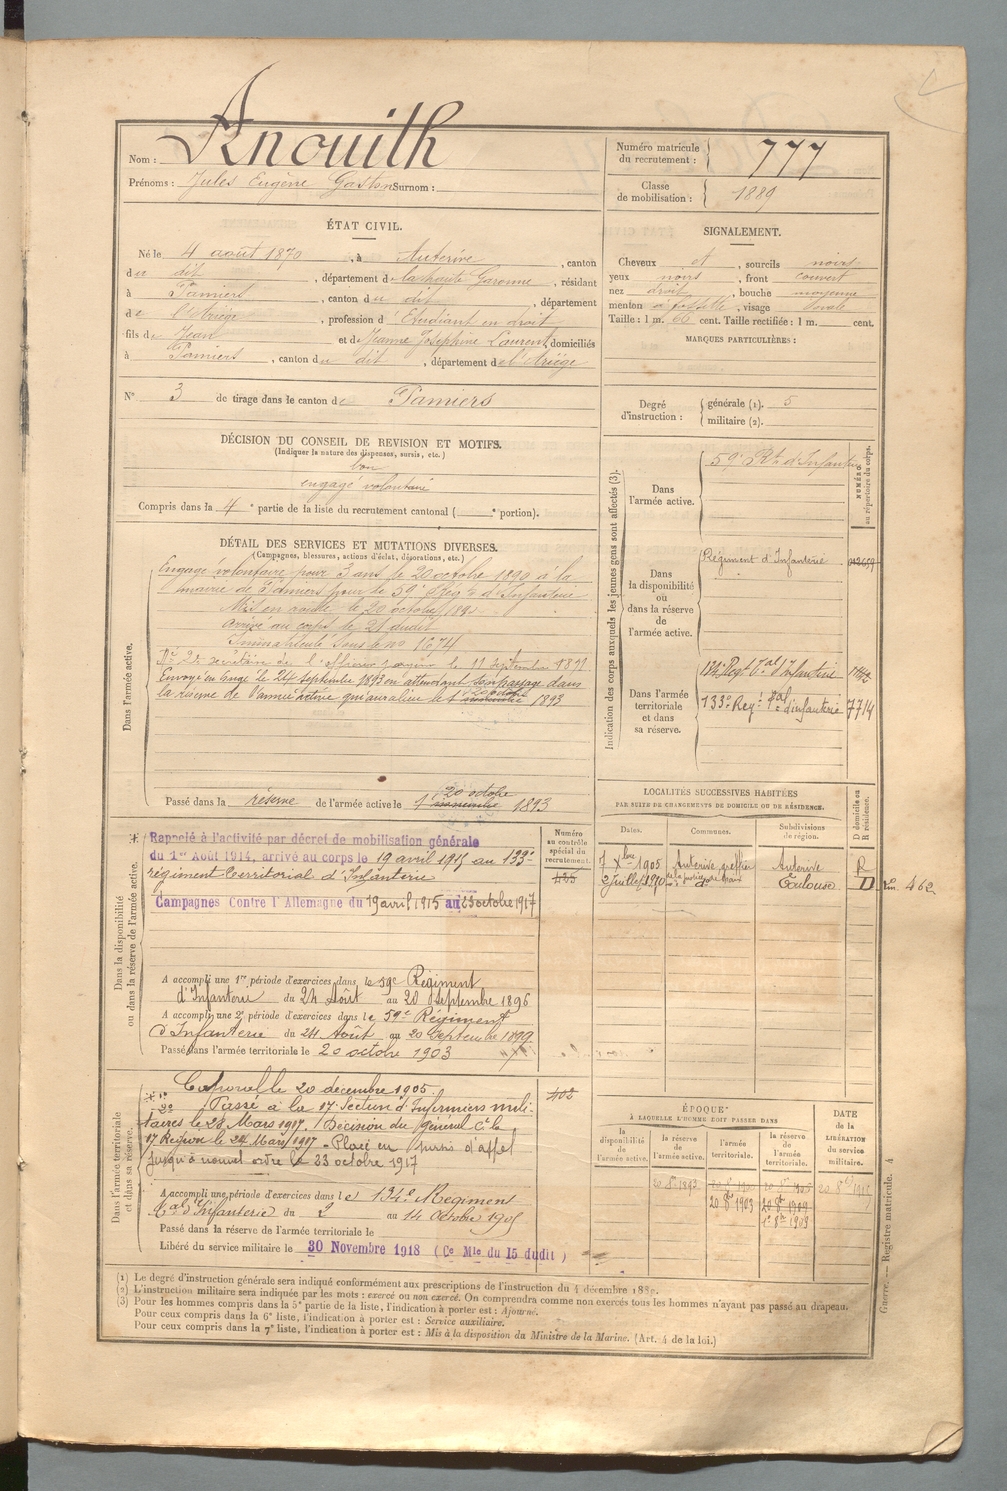 Anouilh
Nom :
Prénoms : Jules Eugène Gaston Surnom :
Numéro matricule du recrutement : 777
Classe de mobilisation : 1889
ÉTAT CIVIL.
Né le 4 août 1870, à Auterive, canton
du dit, département de la haute Garonne, résidant
à Pamiers, canton du dit, département
de l'Ariège, profession d'Etudiant en droit
fils de Jean et de Jeanne Joséphine Laurent, domiciliés
à Pamiers, canton du dit, département de l'Ariège
N° 3 de tirage dans le canton de Pamiers
SIGNALEMENT.
Cheveux et, sourcils noirs
yeux noirs, front couvert
nez droit, bouche moyenne
menton à fossette, visage ovale
Taille : 1 m. 66 cent. Taille rectifiée : 1 m. cent.
MARQUES PARTICULIÈRES :
Degré d'instruction : générale (1). 5
militaire (2).
DÉCISION DU CONSEIL DE REVISION ET MOTIFS.
(Indiquer la nature des dispenses, sursis, etc.)
bon
engagé volontaire
Compris dans la 4e partie de la liste du recrutement cantonal ( e portion).
DÉTAIL DES SERVICES ET MUTATIONS DIVERSES.
(Campagnes, blessures, actions d'éclat, décorations, etc.)
Dans l'armée active.
Engagé volontaire pour 3 ans le 20 octobre 1890 à la
mairie de Pamiers pour le 59e Régt d'Infanterie
Mis en route le 20 octobre 1890
Arrivé au corps le 21 dudit
Immatriculé sous le no 1674
secrétaire de l'officier payeur le 11 septembre 1891
Envoyé en congé le 24 septembre 1893 en attendant son passage dans
la réserve de l'armée active qui aura lieu le 20 octobre 1893
Passé dans la réserve de l'armée active le 20 octobre 1893
Indication des corps auxquels les jeunes gens sont affectés (3).
NUMÉRO au répertoire du corps.
Dans l'armée active.
59e Rt d'Infanterie
Dans la disponibilité ou dans la réserve de l'armée active.
Régiment d'Infanterie
Dans l'armée territoriale et dans sa réserve.
134e Regt Tal d'Infanterie
133e Regt Tal d'infanterie 7714
LOCALITÉS SUCCESSIVES HABITÉES
PAR SUITE DE CHANGEMENTS DE DOMICILE OU DE RÉSIDENCE.
Dates. Communes. Subdivisions de région. D domicile ou R résidence.
7 Xbre 1905 Auterive, greffier de la justice de paix Auterive R
2 juillet 1910 do Toulouse D 462
Dans la disponibilité ou dans la réserve de l'armée active.
Numéro au contrôle spécial du recrutement.
Rappelé à l'activité par décret de mobilisation générale
du 1er Août 1914, arrivé au corps le 19 avril 1915 au 133e
régiment Territorial d'Infanterie
Campagnes Contre l'Allemagne du 19 avril 1915 au 23 octobre 1917
A accompli une 1re période d'exercices dans le 59e Régiment
d'Infanterie du 24 Août au 20 Septembre 1896
A accompli une 2e période d'exercices dans le 59e Régiment
d'Infanterie du 24 Août au 20 Septembre 1899
Passé dans l'armée territoriale le 20 octobre 1903
Dans l'armée territoriale et dans sa réserve.
402
Caporal le 20 décembre 1905
Passé à la 17e Section d'Infirmiers mili-
taires le 28 Mars 1917. Décision du Général Ct la
17 Région le 24 Mars 1917 - Placé en sursis d'appel
jusqu'à nouvel ordre le 23 octobre 1917
A accompli une période d'exercices dans le 134e Régiment
Tal d'Infanterie du 2 au 14 Octobre 1905
Passé dans la réserve de l'armée territoriale le
Libéré du service militaire le 30 Novembre 1918 (Ce Mle du 15 dudit)
ÉPOQUE
À LAQUELLE L'HOMME DOIT PASSER DANS
la disponibilité de l'armée active. la réserve de l'armée active. l'armée territoriale. la réserve de l'armée territoriale.
DATE de la LIBÉRATION du service militaire.
20 8bre 1893
20 8bre 1903 20 8bre 1909
1er 8bre 1909
(1) Le degré d'instruction générale sera indiqué conformément aux prescriptions de l'instruction du 4 décembre 1889.
(2) L'instruction militaire sera indiquée par les mots : exercé ou non exercé. On comprendra comme non exercés tous les hommes n'ayant pas passé au drapeau.
(3) Pour les hommes compris dans la 5e partie de la liste, l'indication à porter est : Ajourné.
Pour ceux compris dans la 6e liste, l'indication à porter est : Service auxiliaire.
Pour ceux compris dans la 7e liste, l'indication à porter est : Mis à la disposition du Ministre de la Marine. (Art. 4 de la loi.)
Guerre. — Registre matricule. 4